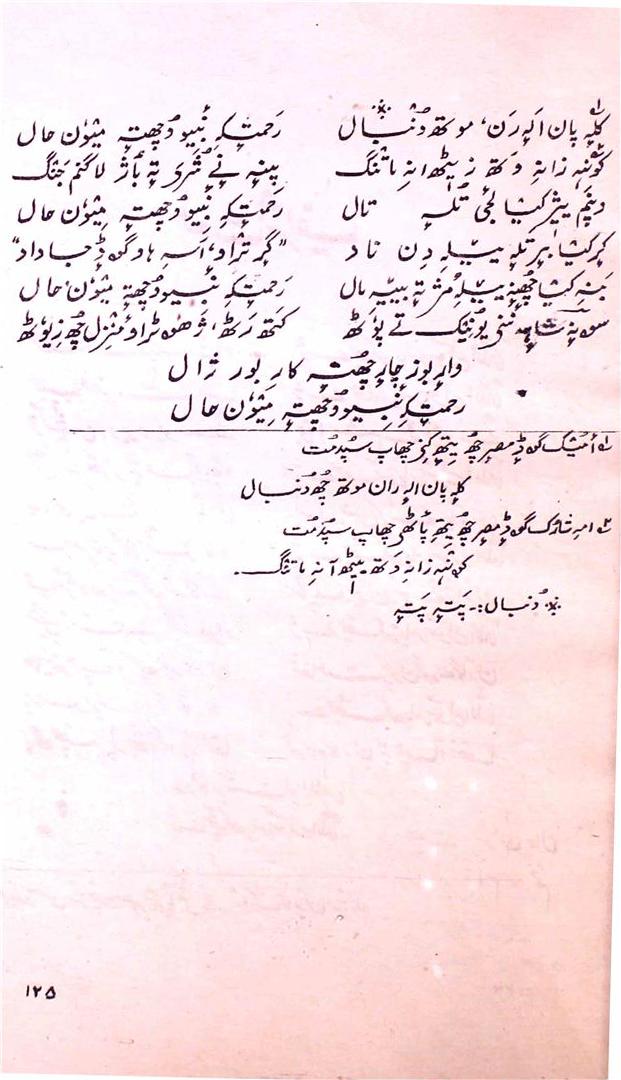 کلہِ پان الہٕ رَن، موتھ دُنبال رَحمتٕکہِ نَبیو وُچھتہٕ میٛون حال
کوٗنہٕ زانہِ وَتھ زیٖٹھ انہِ ماتَنگ پیٚنہٕ نےٚ شَری تہٕ بٲژ لاگنَم جَنگ
دِنٕم ییٚژ کیشا لٔجی تُلہٕ تال رَحمتٕکہِ نَبیو وُچھتہٕ میٛون حال
کَرِ کیشا بَر تلہٕ ییٚلہِ دِن ناد "گَر ترٛاو، اَسہِ ہاو گۄڈ جاداد"
بَنہِ کیشا چھنہٕ ییٚلہِ مُژ تہٕ بییٚہ مال رَحمتٕکہِ نَبیو وُچھتہٕ میٛون حال
سوہ پہٕ شاہہٕ نَنی یوٗتیک تے پوٗٹھ کَتھ رَٹھ، ژھۄہ ترٛاو، مَنزِل چھُ زیوٗٹھ
وایہِ بوز چارٕ چھتہٕ کار بور ژال
رحمتٕکہِ نَبیو وُچھتہٕ میٛون حال
۱ اَمیُک گۄڈ مصرٕ چھُ یِتھہٕ کٔنۍ چھاپ سپُدمُت
کلہِ پان الہٕ ران موتھ چھُ دُنبال
۲ امہِ شارُک گۄڈ مصرٕ چھُ یِتھہٕ پٲٹھۍ چھاپ سپُدمُت
کوٗنہٕ زانہِ وَتھ بیٹھ آنہِ ماتنگ۔
※ دُنبال :۔ پَتہٕ پَتہٕ
۱۲۵